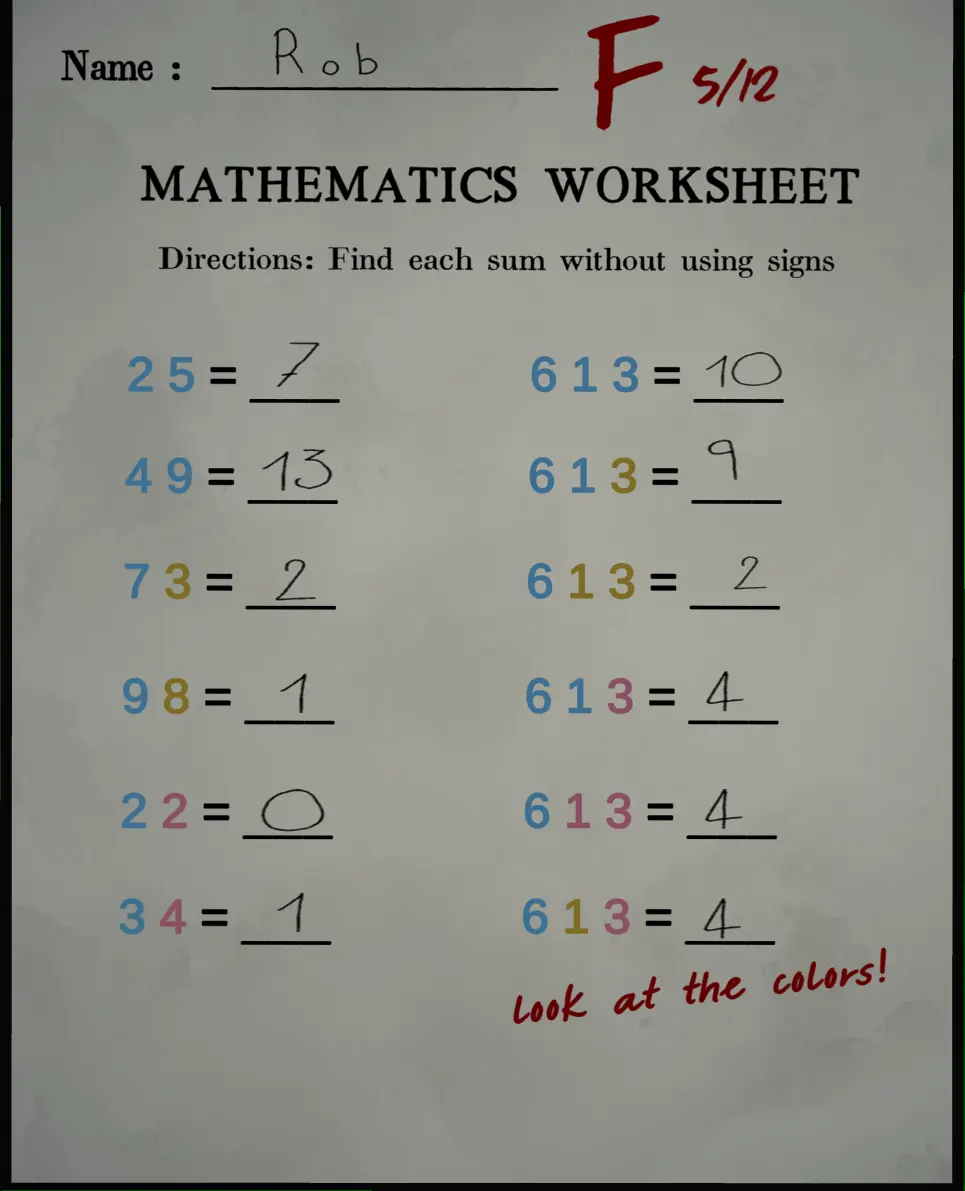 Name : Rob F 5/12
MATHEMATICS WORKSHEET
Directions: Find each sum without using signs
2 5 = 7
6 1 3 = 10
4 9 = 13
6 1 3 = 9
7 3 = 2
6 1 3 = 2
9 8 = 1
6 1 3 = 4
2 2 = 0
6 1 3 = 4
3 4 = 1
6 1 3 = 4
Look at the colors!